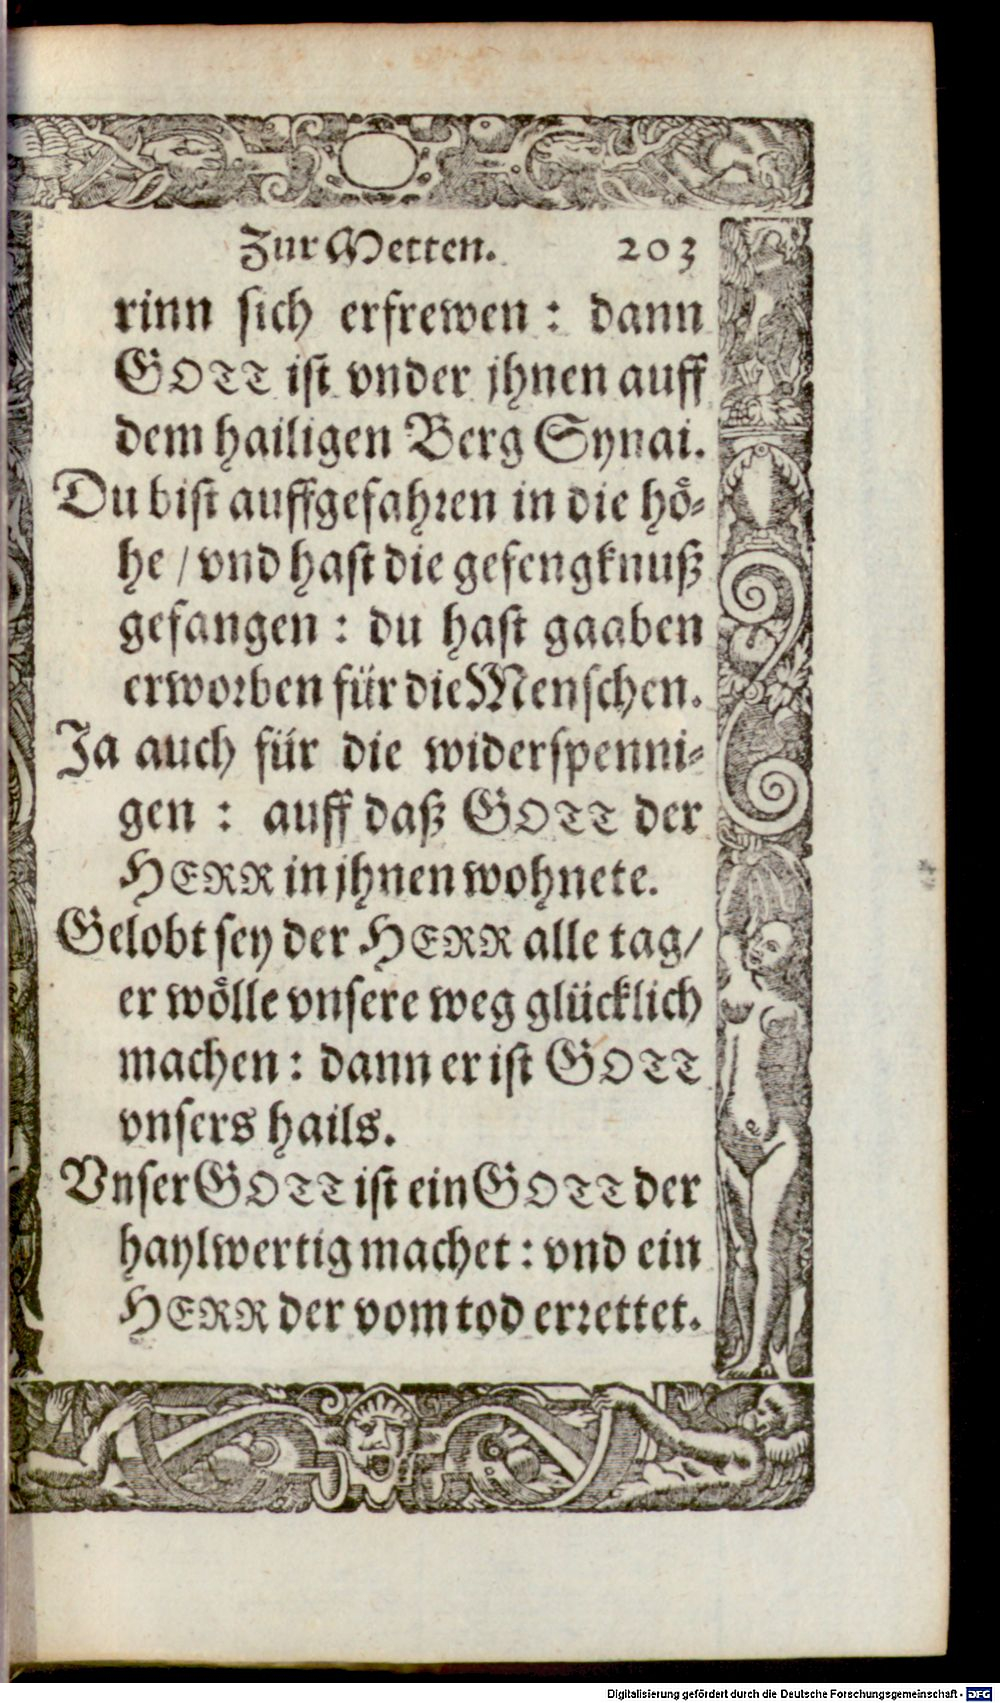 Zur Metten. 203
rinn sich erfrewen : dann
GOTT ist vnder jhnen auff
dem hailigen Berg Synai.
Du bist auffgefahren in die hö-
he / vnd hast die gefengknuß
gefangen : du hast gaaben
erworben für die Menschen.
Ja auch für die widerspenni-
gen : auff daß GOTT der
HERR in jhnen wohnete.
Gelobt sey der HERR alle tag/
er wölle vnsere weg glücklich
machen : dann er ist GOTT
vnsers hails.
Vnser GOTT ist ein GOTT der
haylwertig machet : vnd ein
HERR der vom tod errettet.
Digitalisierung gefördert durch die Deutsche Forschungsgemeinschaft - DFG